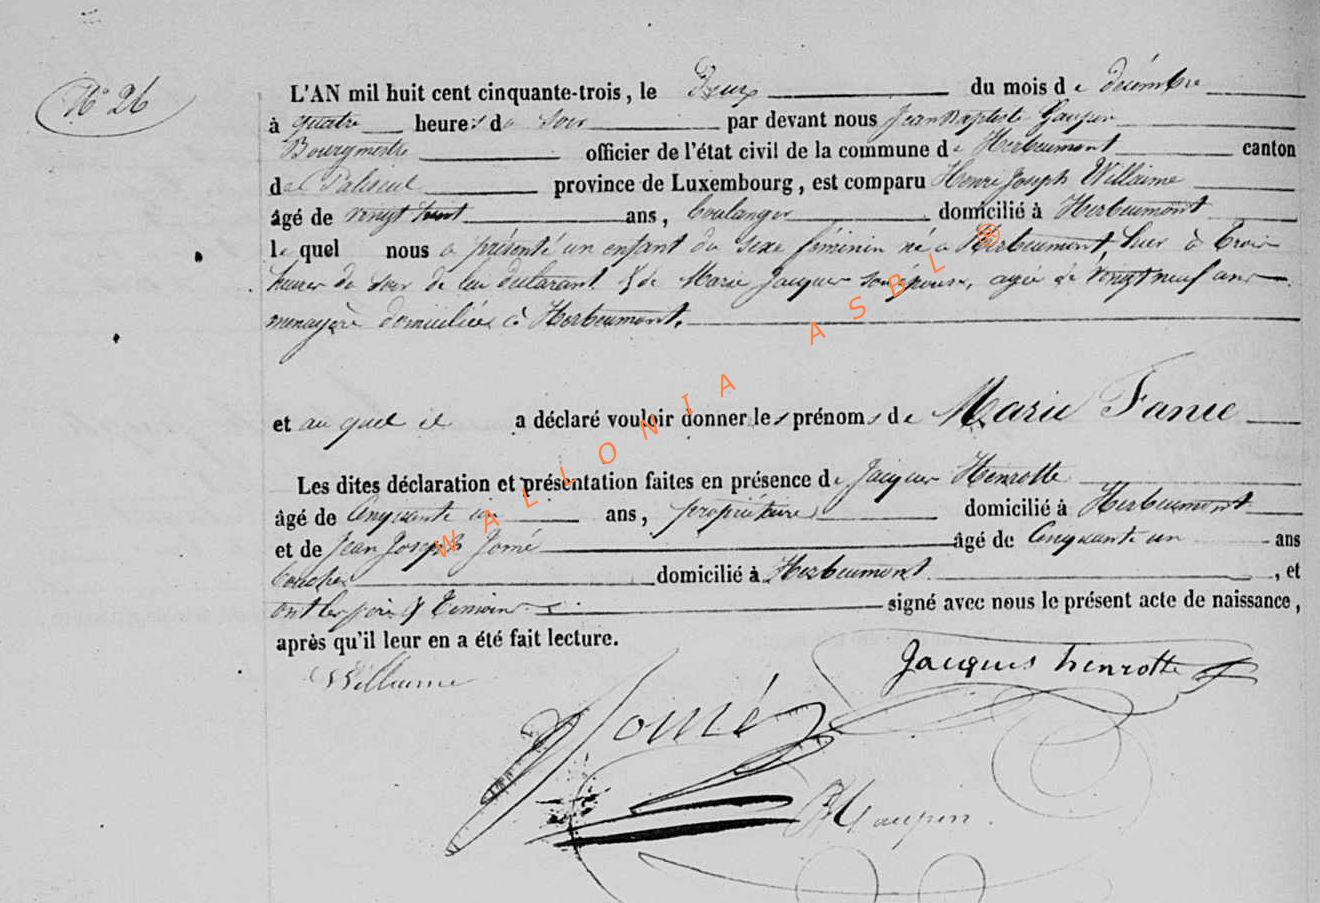 N° 26
L'AN mil huit cent cinquante-trois, le Deux du mois de décembre
à quatre heures du soir par devant nous Jean Baptiste Gaupin
Bourgmestre officier de l'état civil de la commune de Herbeumont canton
de Paliseul province de Luxembourg, est comparu Henri Joseph Willaime
âgé de vingt huit ans, boulanger domicilié à Herbeumont
lequel nous a présenté un enfant du sexe féminin né à Herbeumont, hier à trois
heures du soir de lui déclarant & de Marie Jacques son épouse, agée de vingt neuf ans
menagère domiciliés à Herbeumont.
et au quel il a déclaré vouloir donner les prénoms de Marie Fanie
Les dites déclaration et présentation faites en présence de Jacques Henrotte
âgé de Cinquante un ans, propriétaire domicilié à Herbeumont
et de Jean Joseph Jomé âgé de Cinquante un ans
boucher domicilié à Herbeumont, et
ont les père & témoins signé avec nous le présent acte de naissance,
après qu'il leur en a été fait lecture.
Willaime
Jacques henrotte
Jomé
Gaupin
WALLONIA ASBL